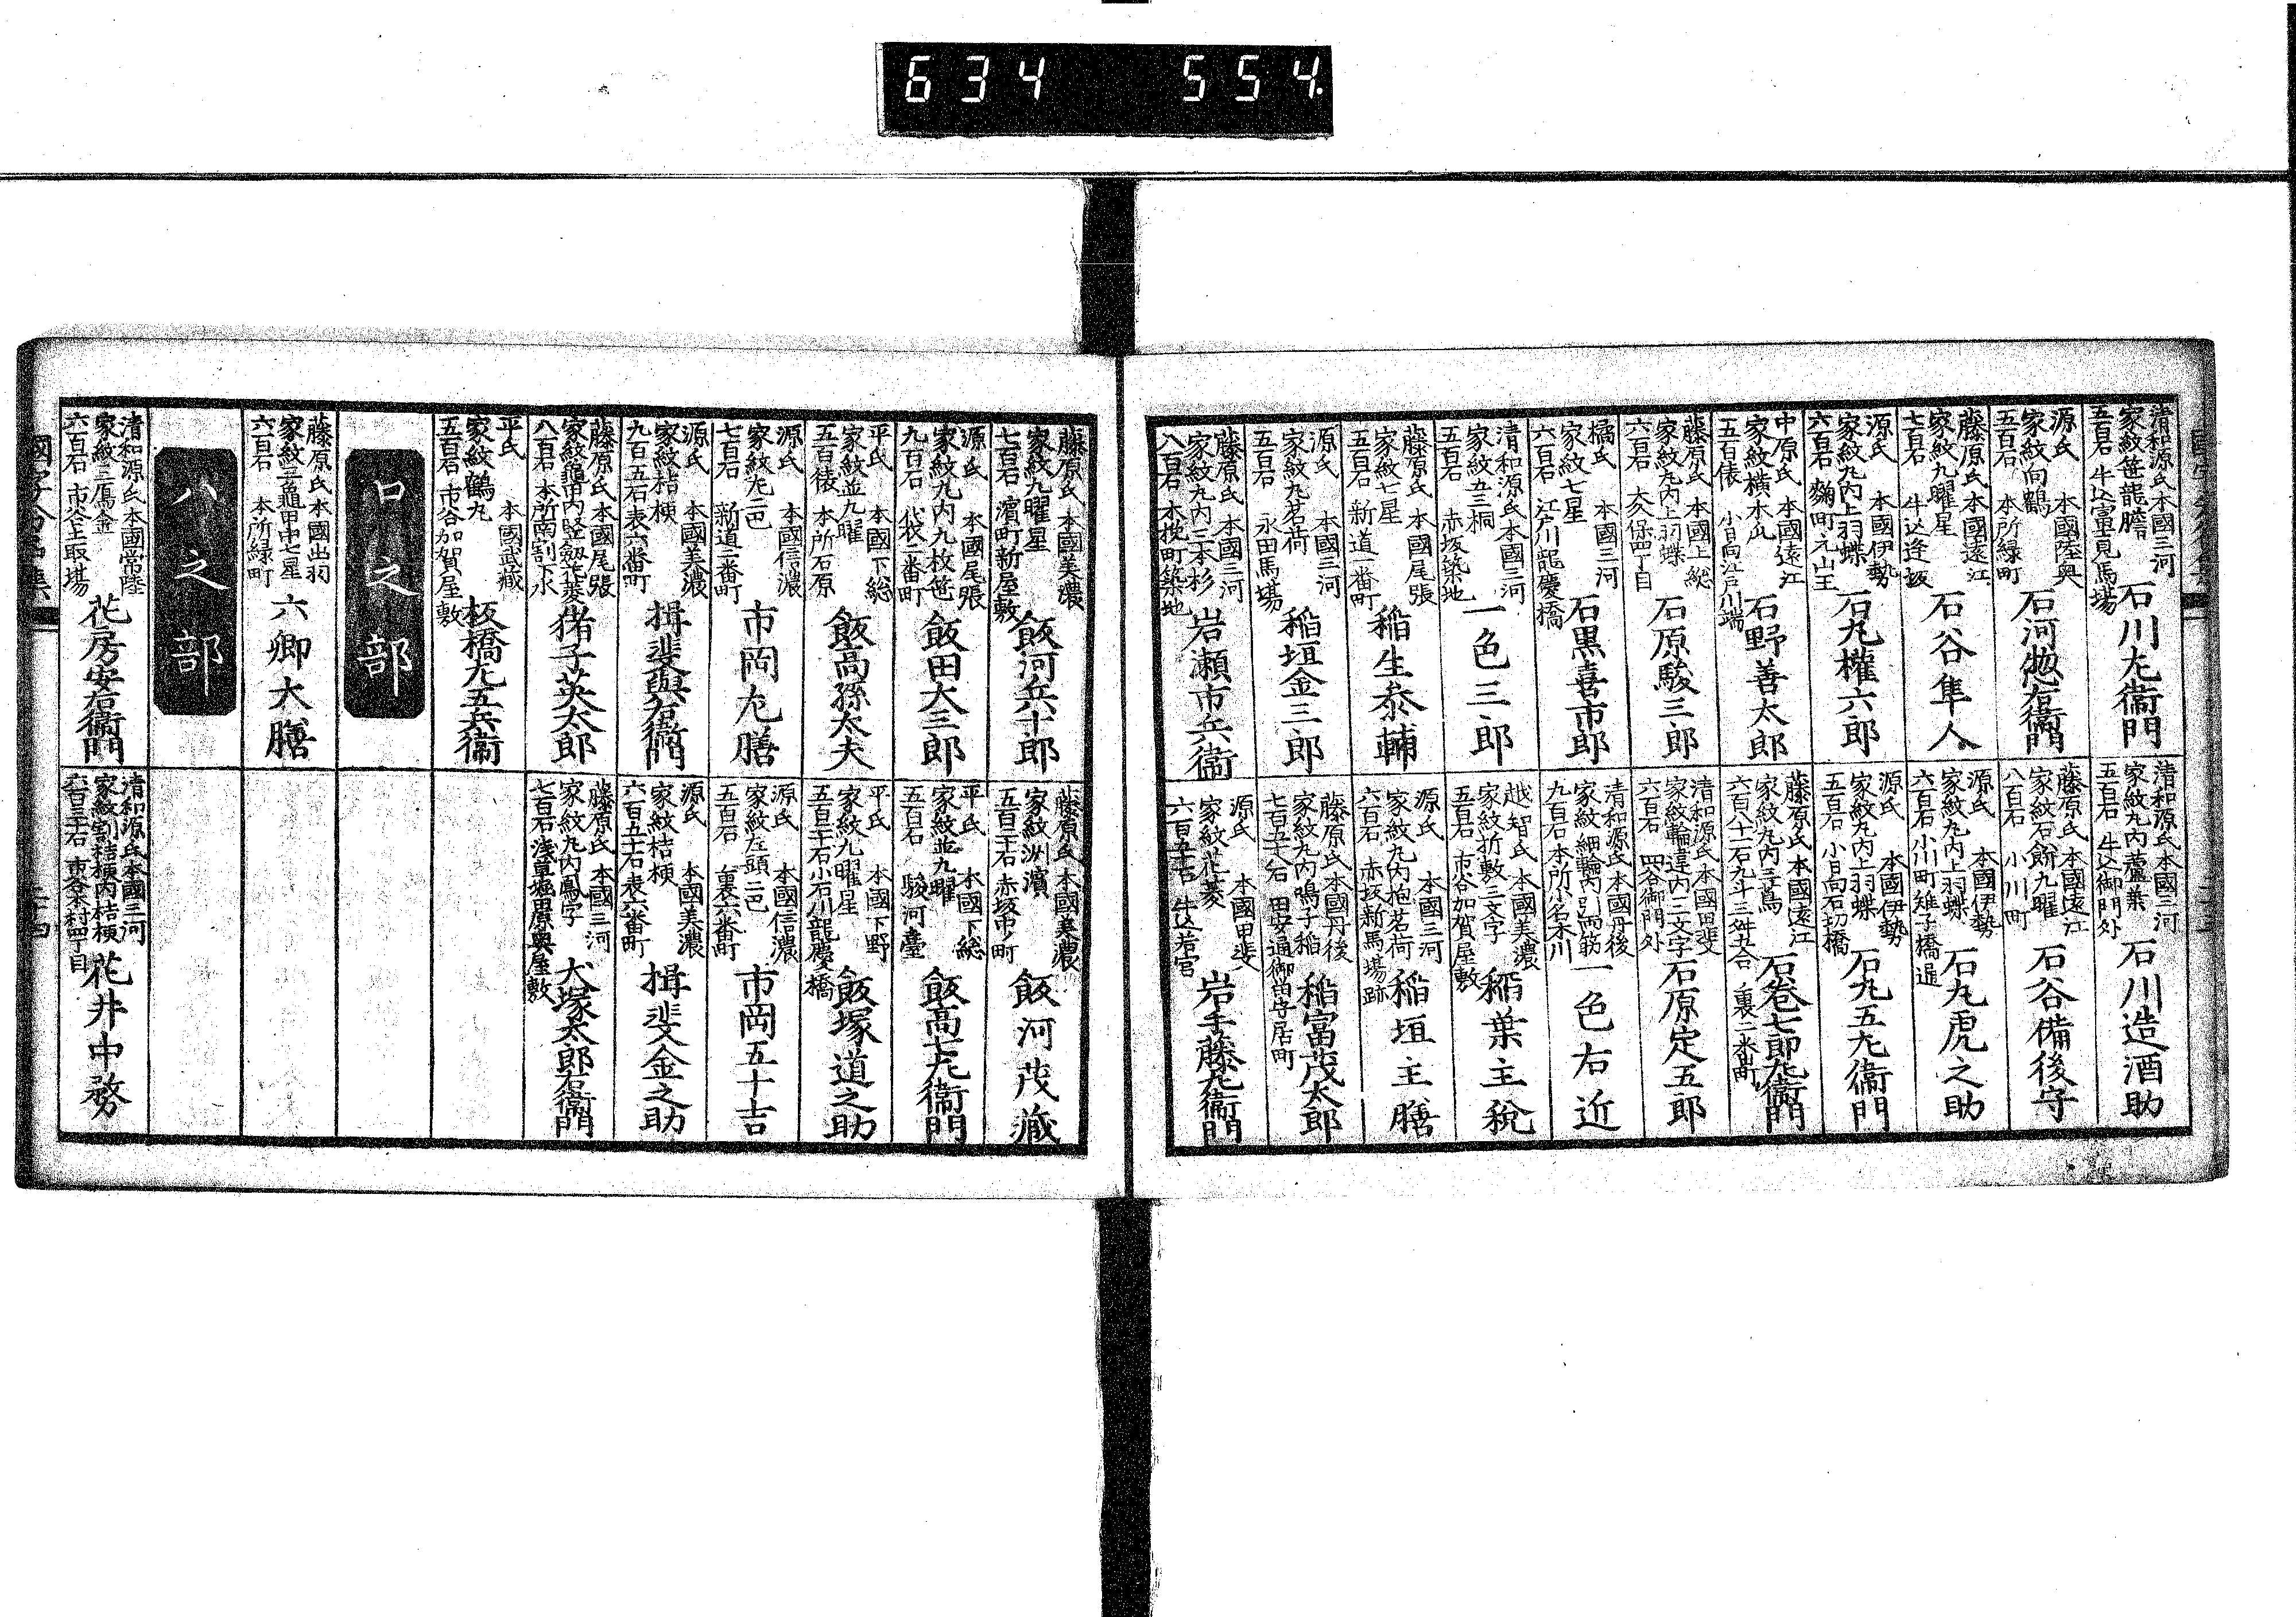 634 554.
清和源氏 本國三河
家紋笹龍膽
五百石 牛込軍見馬場
石川左衞門
源氏 本國陸奥
家紋向鶴
五百石 本所緑町
石河惣右衞門
藤原氏 本國遠江
家紋九曜星
七百石 牛込逢坂
石谷隼人
源氏 本國伊勢
家紋丸内上羽蝶
六百石 麹町元山王
石丸權六郎
中原氏 本國遠江
家紋横木瓜
五百俵 小日向江戸川端
石野善太郎
藤原氏 本國上総
家紋丸内上羽蝶
六百石 大久保四丁目
石原駿三郎
橘氏 本國三河
家紋七星
六百石 江戸川龍慶橋
石黒喜市郎
清和源氏 本國三河
家紋五三桐
五百石 赤坂築地
一色三郎
藤原氏 本國尾張
家紋七星
五百石 新道一番町
稲生泰輔
源氏 本國三河
家紋丸茗荷
五百石 永田馬場
稲垣金三郎
藤原氏 本國三河
家紋丸内三本杉
八百石 木挽町築地
岩瀬市兵衞
清和源氏 本國三河
家紋丸内蘆葉
五百石 牛込御門外
石川造酒助
藤原氏 本國遠江
家紋石餅九曜
八百石 小川町
石谷備後守
源氏 本國伊勢
家紋丸内上羽蝶
六百石 小川町雉子橋通
石丸虎之助
源氏 本國伊勢
家紋丸内上羽蝶
五百石 小日向石切橋
石丸五左衞門
藤原氏 本國遠江
家紋丸内三鳥
六百八十一石九斗三舛廿合 裏二番町
石巻七郎左衞門
清和源氏 本國甲斐
家紋輪違内二文字
六百石 四谷御門外
石原定五郎
清和源氏 本國丹後
家紋細輪内引両筋
九百石 本所小名木川
一色右近
越智氏 本國美濃
家紋折敷三文字
五百石 市谷加賀屋敷
稲葉主税
源氏 本國三河
家紋丸内抱茗荷
六百石 赤坂新馬場跡
稲垣主膳
藤原氏 本國丹後
家紋丸内鳴子稲
七百五十石 田安通御留守居町
稲富茂太郎
源氏 本國甲斐
家紋花菱
六百五十石 牛込若宮
岩手藤左衞門
藤原氏 本國美濃
家紋九曜星
七百石 濱町新屋敷
飯河兵十郎
源氏 本國尾張
家紋丸内九枚笹
九百石 代官二番町
飯田大三郎
平氏 本國下総
家紋並九曜
五百俵 本所石原
飯高孫太夫
源氏 本國信濃
家紋左二巴
七百石 新道二番町
市岡左膳
源氏 本國美濃
家紋桔梗
九百五石 表六番町
揖斐與右衞門
藤原氏 本國尾張
家紋龜甲内竪釼花菱
八百石 本所南割下水
猪子英太郎
平氏 本國武蔵
家紋鶴丸
五百石 市谷加賀屋敷
板橋左五兵衞
藤原氏 本國美濃
家紋洲濱
五百三十石 赤坂中ノ町
飯河茂蔵
平氏 本國下総
家紋並九曜
五百石 駿河臺
飯高七左衞門
平氏 本國下野
家紋九曜星
五百三十石 小石川龍慶橋
飯塚道之助
源氏 本國信濃
家紋左頭二巴
五百石 裏六番町
市岡五十吉
源氏 本國美濃
家紋桔梗
六百五十石 表六番町
揖斐金之助
藤原氏 本國三河
家紋丸内鳳字
七百石 淺草堀田原與屋敷
犬塚太郎右衞門
ロ之部
藤原氏 本國出羽
家紋三龜甲中七星
六百石 本所緑町
六郷大膳
ハ之部
清和源氏 本國常陸
家紋三鳫金
六百石 市谷上取場
花房安右衞門
清和源氏 本國三河
家紋割桔梗内桔梗
六百三十石 市谷本村四丁目
花井中務